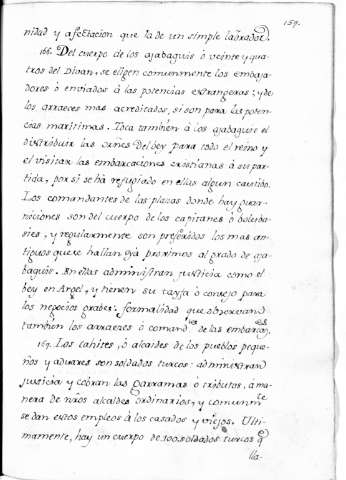 159.
nidad y afectacion que la de un simple labrador.
166. Del cuerpo de los ajabaguis ò veinte y qua-
tros del Divan, se eligen comunmente los embaja-
dores ò enviados à las potencias extrangeras: y de
los arraeces mas acreditados, si son para las poten-
cias maritimas. Toca tambien à los ajabaguis el
distribuir las ordenes del bey para todo el reino y
el visitar las embarcaciones cristianas à su par-
tida, por si se há refugiado en ellas algun cautivo.
Los comandantes de las plazas donde hay guar-
niciones son del cuerpo de los capitanes ò boluba-
sies, y regularmente son preferidos los mas an-
tiguos que se hallan yá proximos al grado de aja-
baguis. En ellas administran justicia como el
bey en Argel, y tienen su tayfa ò consejo para
los negocios grabes: formalidad que observan
tambien los arraeces ò comand.tes de las embarcac.es
167. Los cahites, ò alcaides de los pueblos peque-
ños y aduares son soldados turcos: administran
justicia y cobran las garramas ò tributos, à ma-
nera de nros alcaldes ordinarios, y comunm.te
se dan estos empleos à los casados y viejos. Ulti-
mamente, hay un cuerpo de 100 soldados turcos q.e
lla-